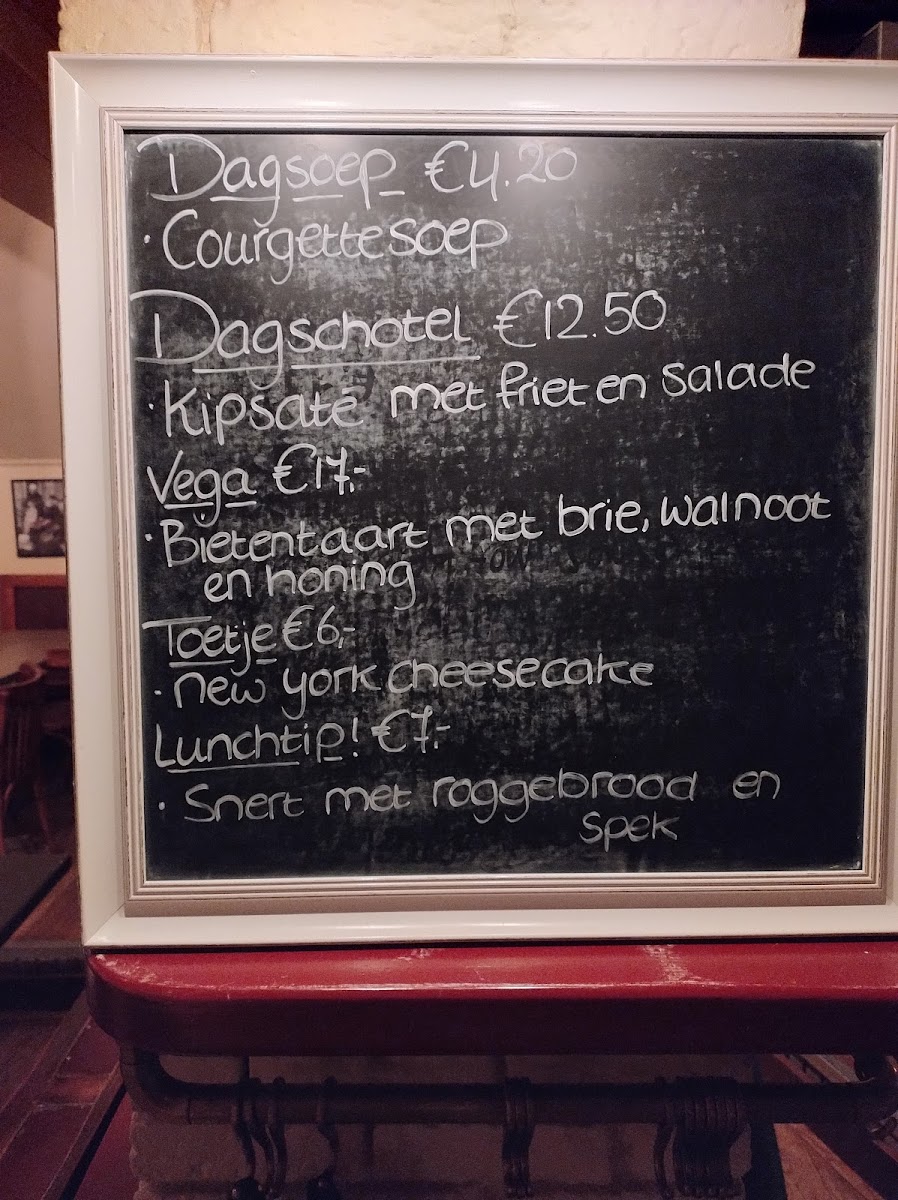 Dagsoep €4.20
· Courgettesoep
Dagschotel €12.50
· Kipsaté met friet en salade
Vega €17,-
· Bietentaart met brie, walnoot
en honing
Toetje €6,-
· new york cheesecake
Lunchtip! €7,-
· Snert met roggebrood en
spek